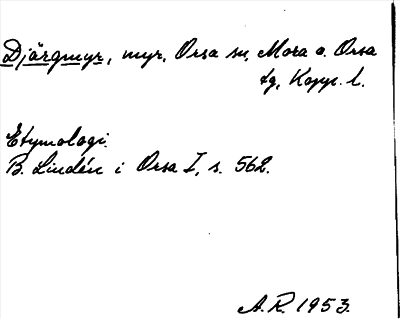 Djärgmyr, myr, Orsa sn, Mora o. Orsa
tg, Kopp. l.
Etymologi.
B. Lindén i Orsa I, s. 562.
A.R. 1953.